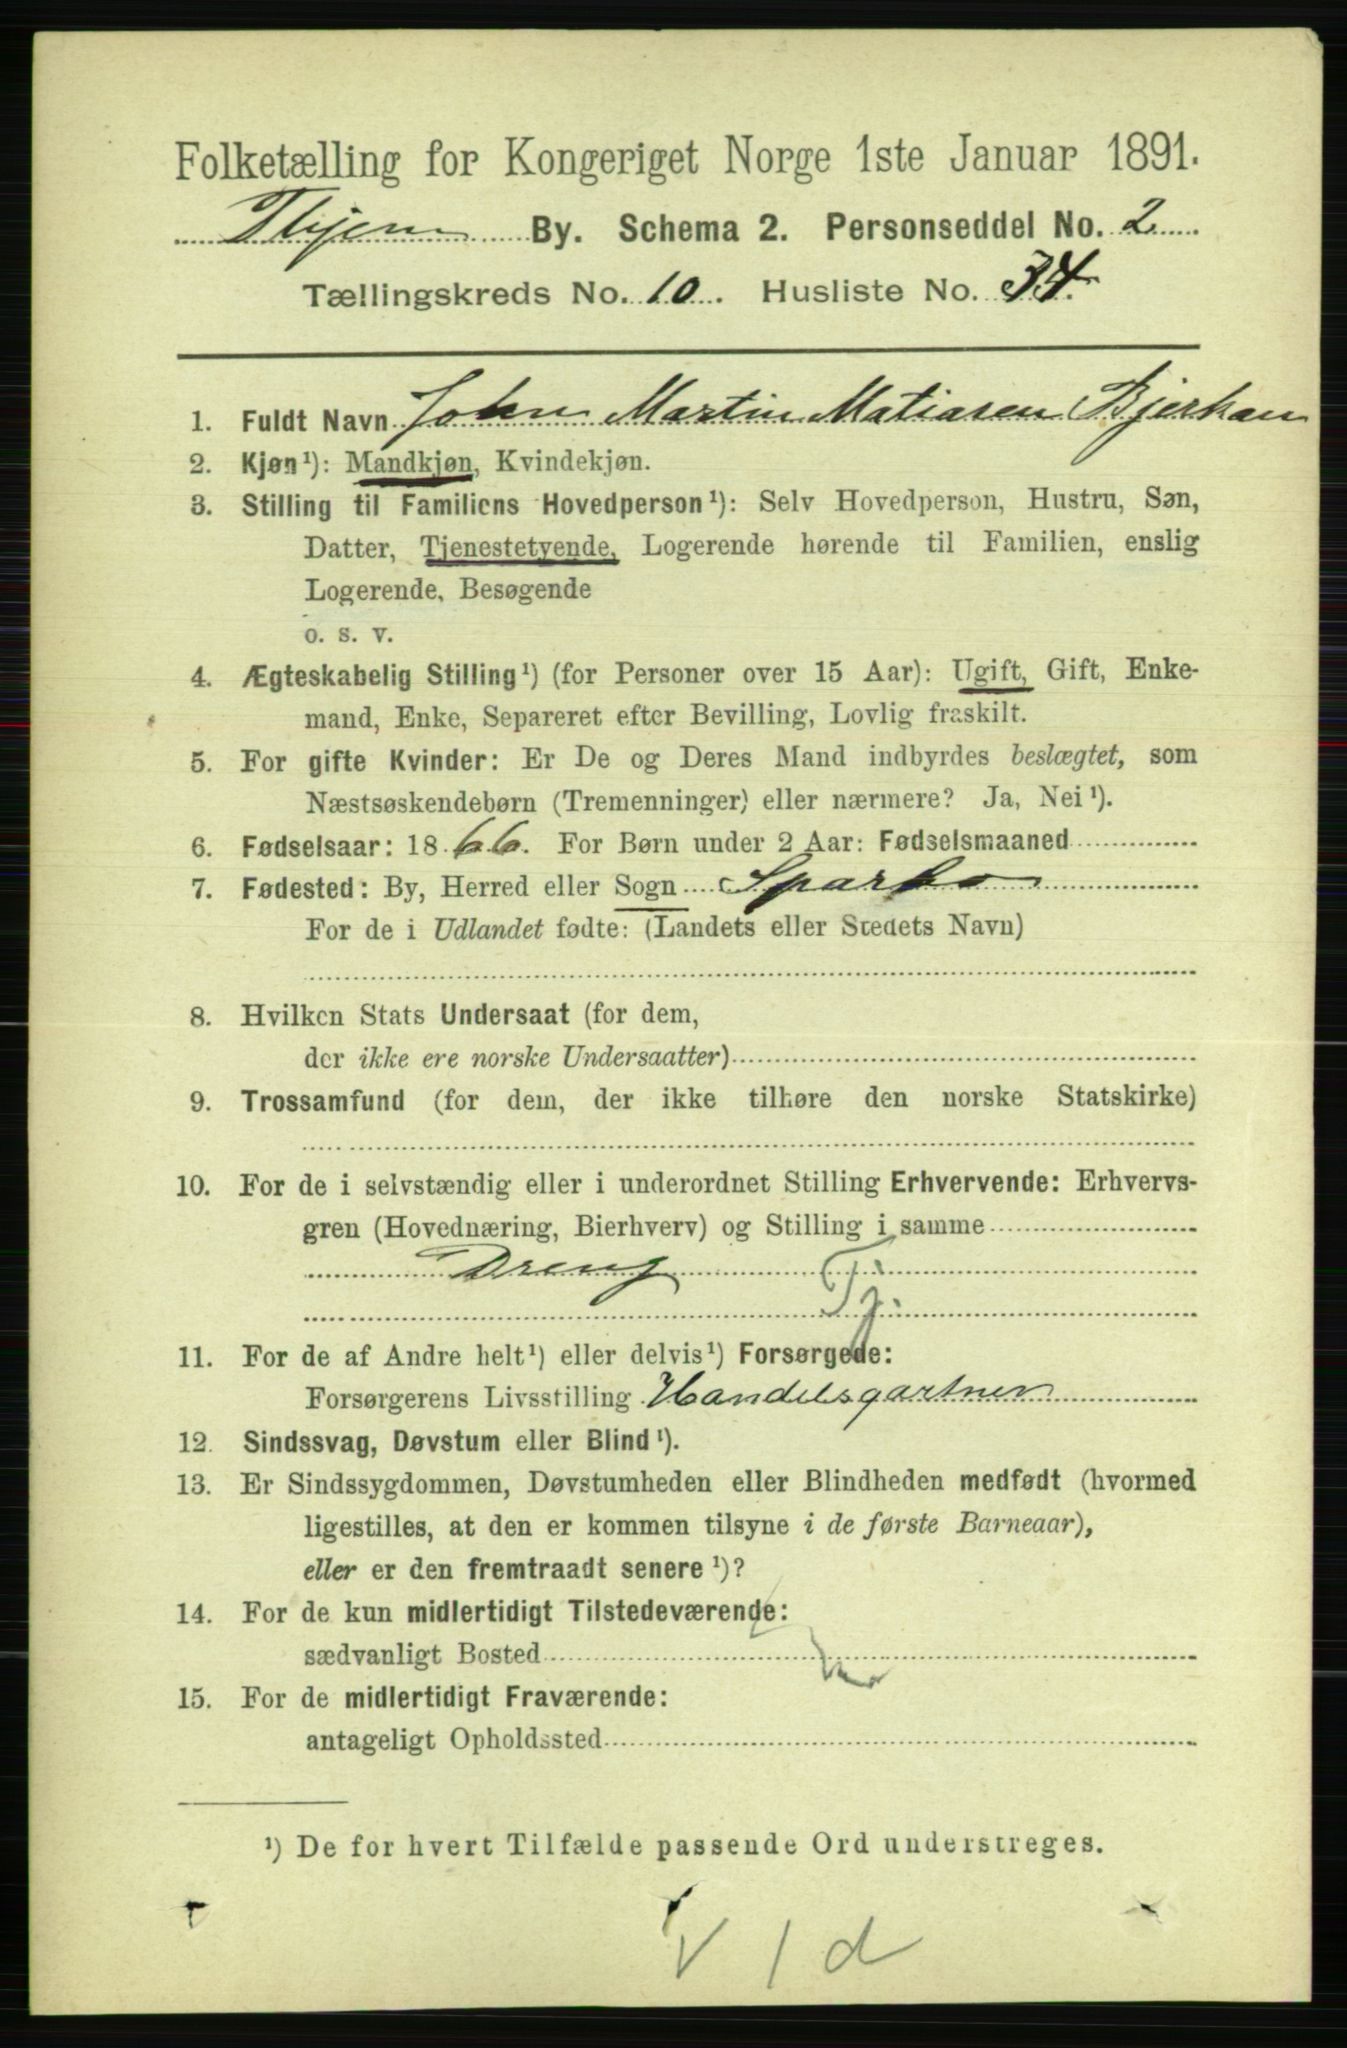 Folketælling for Kongeriget Norge 1ste Januar 1891.
Thjem By. Schema 2. Personseddel No. 2
Tællingskreds No. 10. Husliste No. 34.
1. Fuldt Navn John Martin Matiasen Bjerkan
2. Kjøn¹): Mandkjøn, Kvindekjøn.
3. Stilling til Familiens Hovedperson¹): Selv Hovedperson, Hustru, Søn,
Datter, Tjenestetyende, Logerende hørende til Familien, enslig
Logerende, Besøgende
o. s. v.
4. Ægteskabelig Stilling¹) (for Personer over 15 Aar): Ugift, Gift, Enke-
mand, Enke, Separeret efter Bevilling, Lovlig fraskilt.
5. For gifte Kvinder: Er De og Deres Mand indbyrdes beslægtet, som
Næstsøskendebørn (Tremenninger) eller nærmere? Ja, Nei¹).
6. Fødselsaar: 1866. For Børn under 2 Aar: Fødselsmaaned
7. Fødested: By, Herred eller Sogn Sparbo
For de i Udlandet fødte: (Landets eller Stedets Navn)
8. Hvilken Stats Undersaat (for dem,
der ikke ere norske Undersaatter)
9. Trossamfund (for dem, der ikke tilhøre den norske Statskirke)
10. For de i selvstændig eller i underordnet Stilling Erhvervende: Erhvervs-
gren (Hovednæring, Bierhverv) og Stilling i samme
Dreng Tj.
11. For de af Andre helt¹) eller delvis¹) Forsørgede:
Forsørgerens Livsstilling Handelsgartner
12. Sindssvag, Døvstum eller Blind¹).
13. Er Sindssygdommen, Døvstumheden eller Blindheden medfødt (hvormed
ligestilles, at den er kommen tilsyne i de første Barneaar),
eller er den fremtraadt senere¹)?
14. For de kun midlertidigt Tilstedeværende:
sædvanligt Bosted
15. For de midlertidigt Fraværende:
antageligt Opholdssted
¹) De for hvert Tilfælde passende Ord understreges.
V 1 d